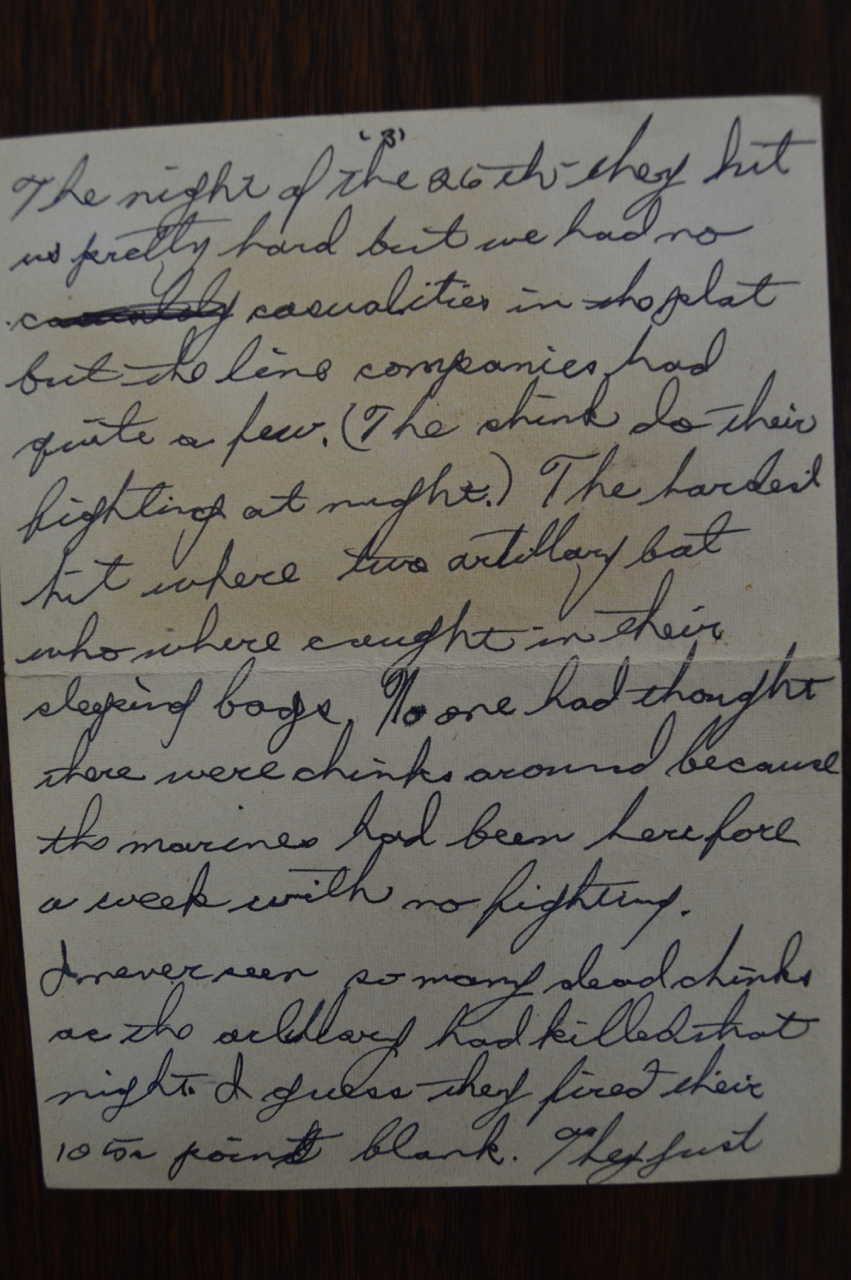 (3)
The night of the 26th they hit
us pretty hard but we had no
casualities in the plat
but the line companies had
quite a few. (The chink do their
fighting at night.) The hardest
hit where two artillary bat
who where caught in their
sleeping bags. No one had thought
there were chinks around because
the marines had been here fore
a week with no fighting.
I never seen so many dead chinks
as the artillary had killed that
night. I guess they fired their
105s point blank. They just